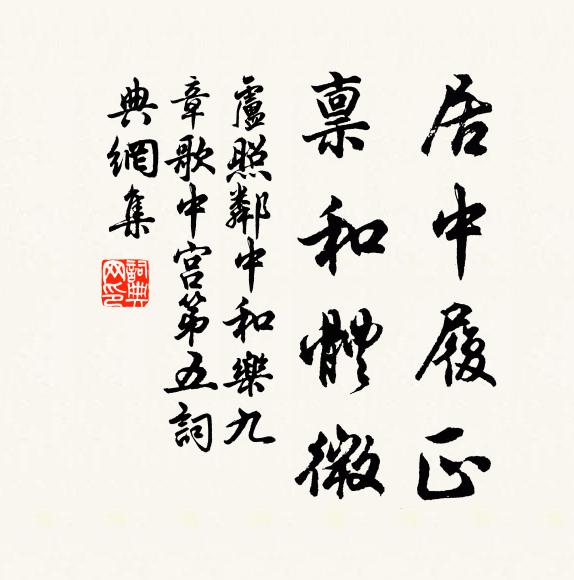 居中履正
禀和體微
盧照鄰中和樂九
章歌中宮第五詞
典網集
詞典網印